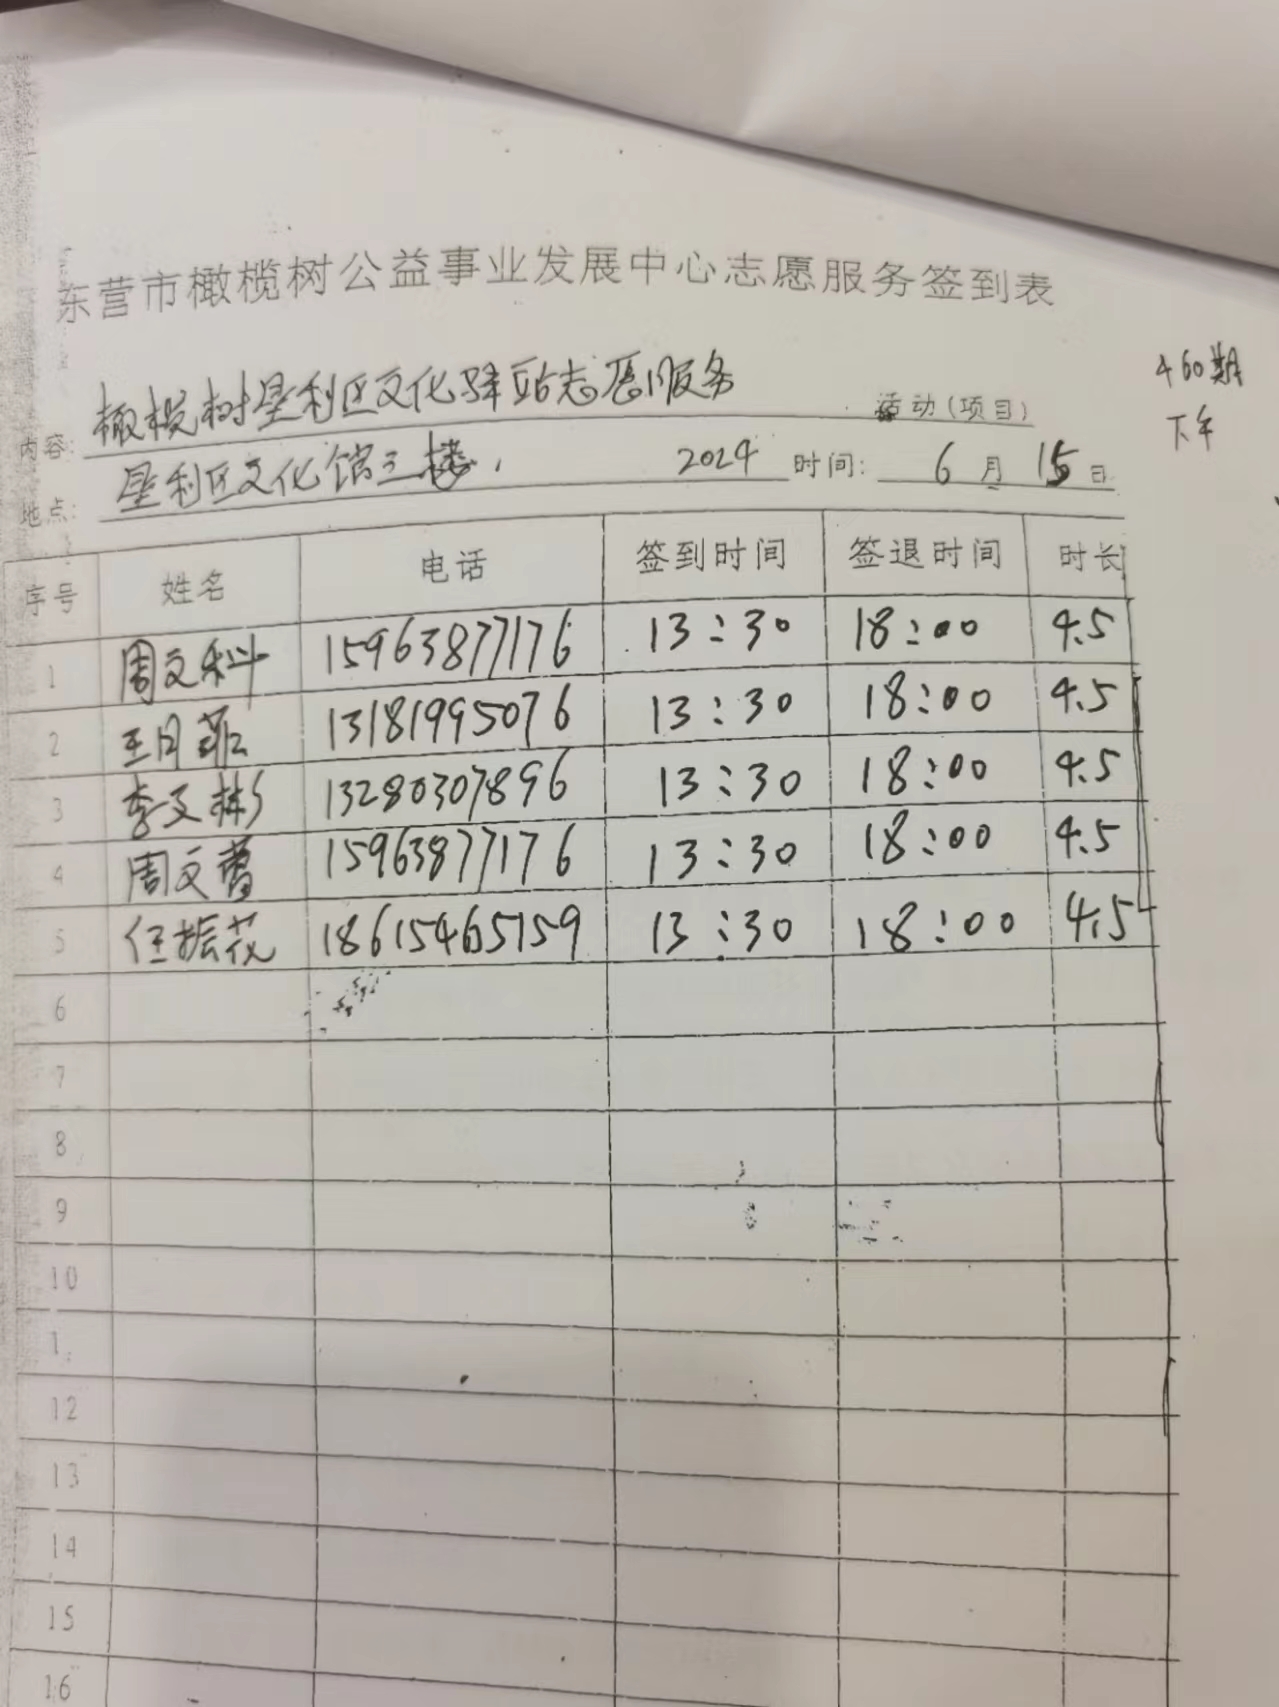 东营市橄榄树公益事业发展中心志愿服务签到表
460期
下午
内容: 橄榄树垦利区文化驿站志愿服务 活动(项目)
地点: 垦利区文化馆三楼. 2024 时间: 6 月 15 日
序号 姓名 电话 签到时间 签退时间 时长
1 周文科 15963877176 13:30 18:00 4.5
2 王月菲 13181995076 13:30 18:00 4.5
3 李文彬 13280307896 13:30 18:00 4.5
4 周文蕾 15963877176 13:30 18:00 4.5
5 任振花 18615465159 13:30 18:00 4.5
6
7
8
9
10
1
12
13
14
15
16